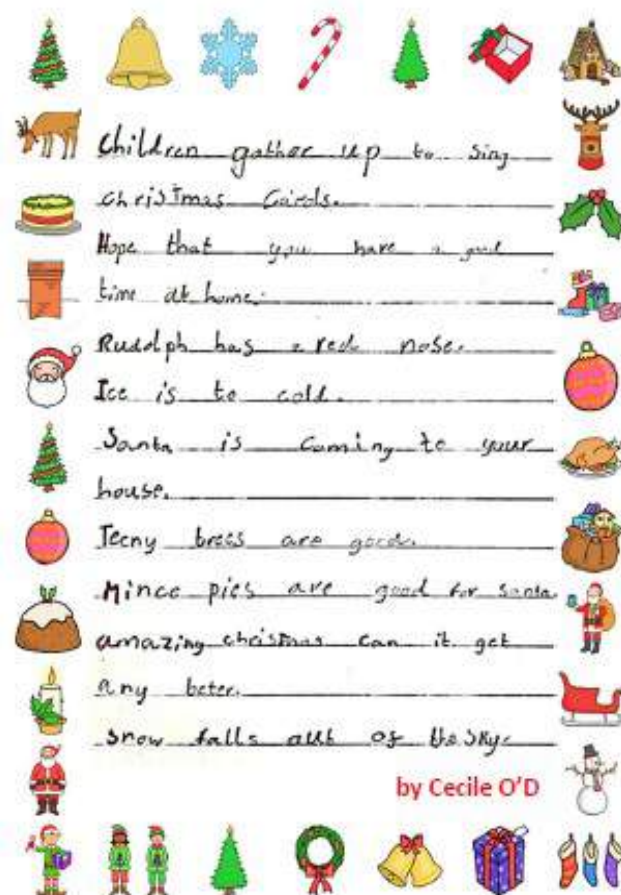 Children gather up to sing
christmas Carols.
Hope that you have a good
time at home.
Rudolph has a red nose.
Ice is to cold.
Santa is coming to your
house.
Teeny trees are good.
Mince pies are good for santa.
amazing christmas can it get
any beter.
snow falls out of the sky.
by Cecile O'D